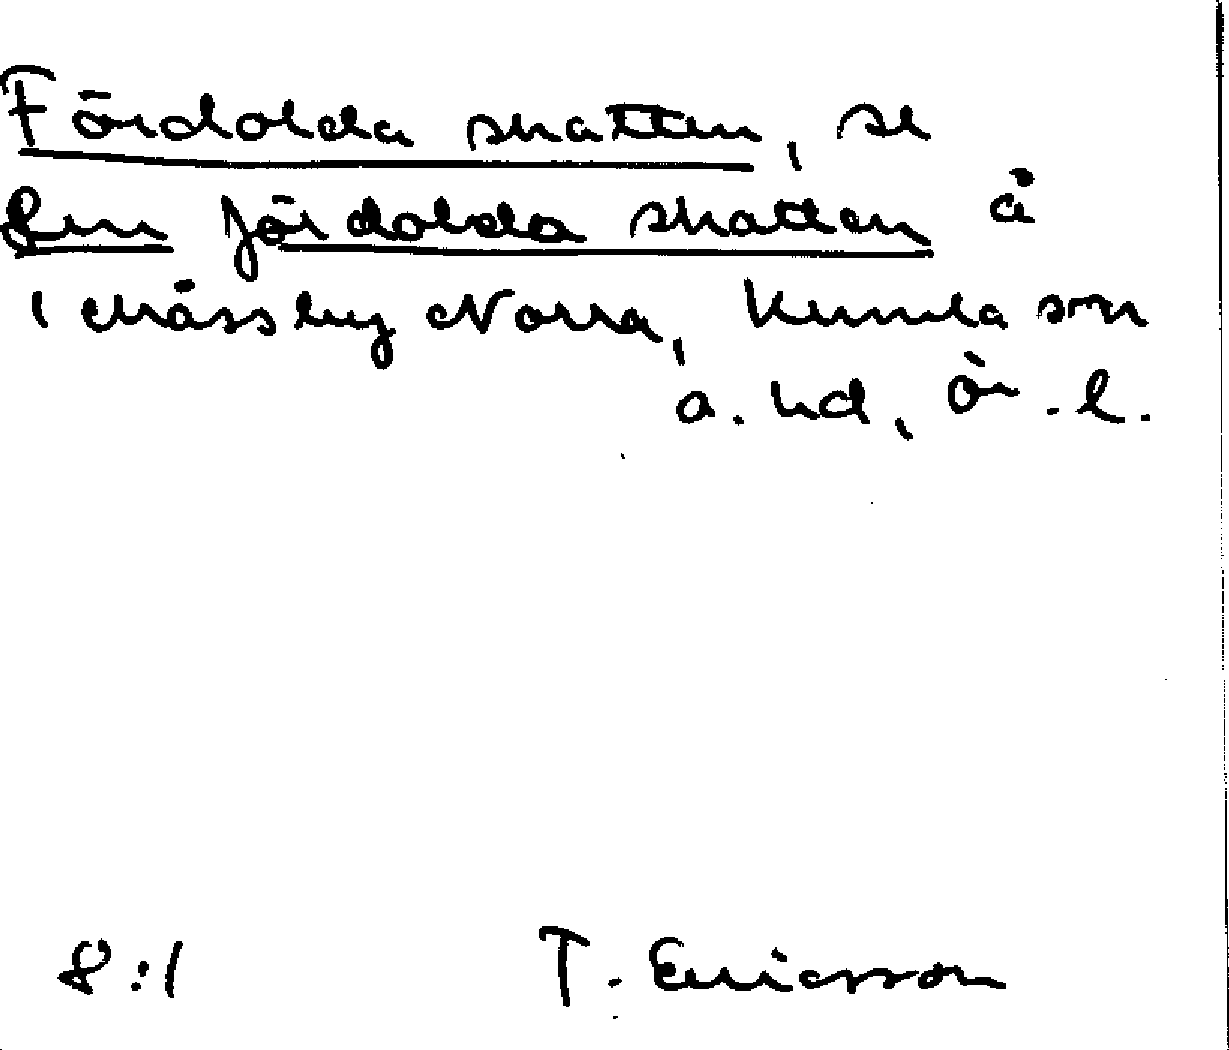 Fördolda skatten, se
Den fördolda skatten å
1 Mässby Norra, Kumla sn
a. hd, Ör. l.
8:1 T. Ericsson